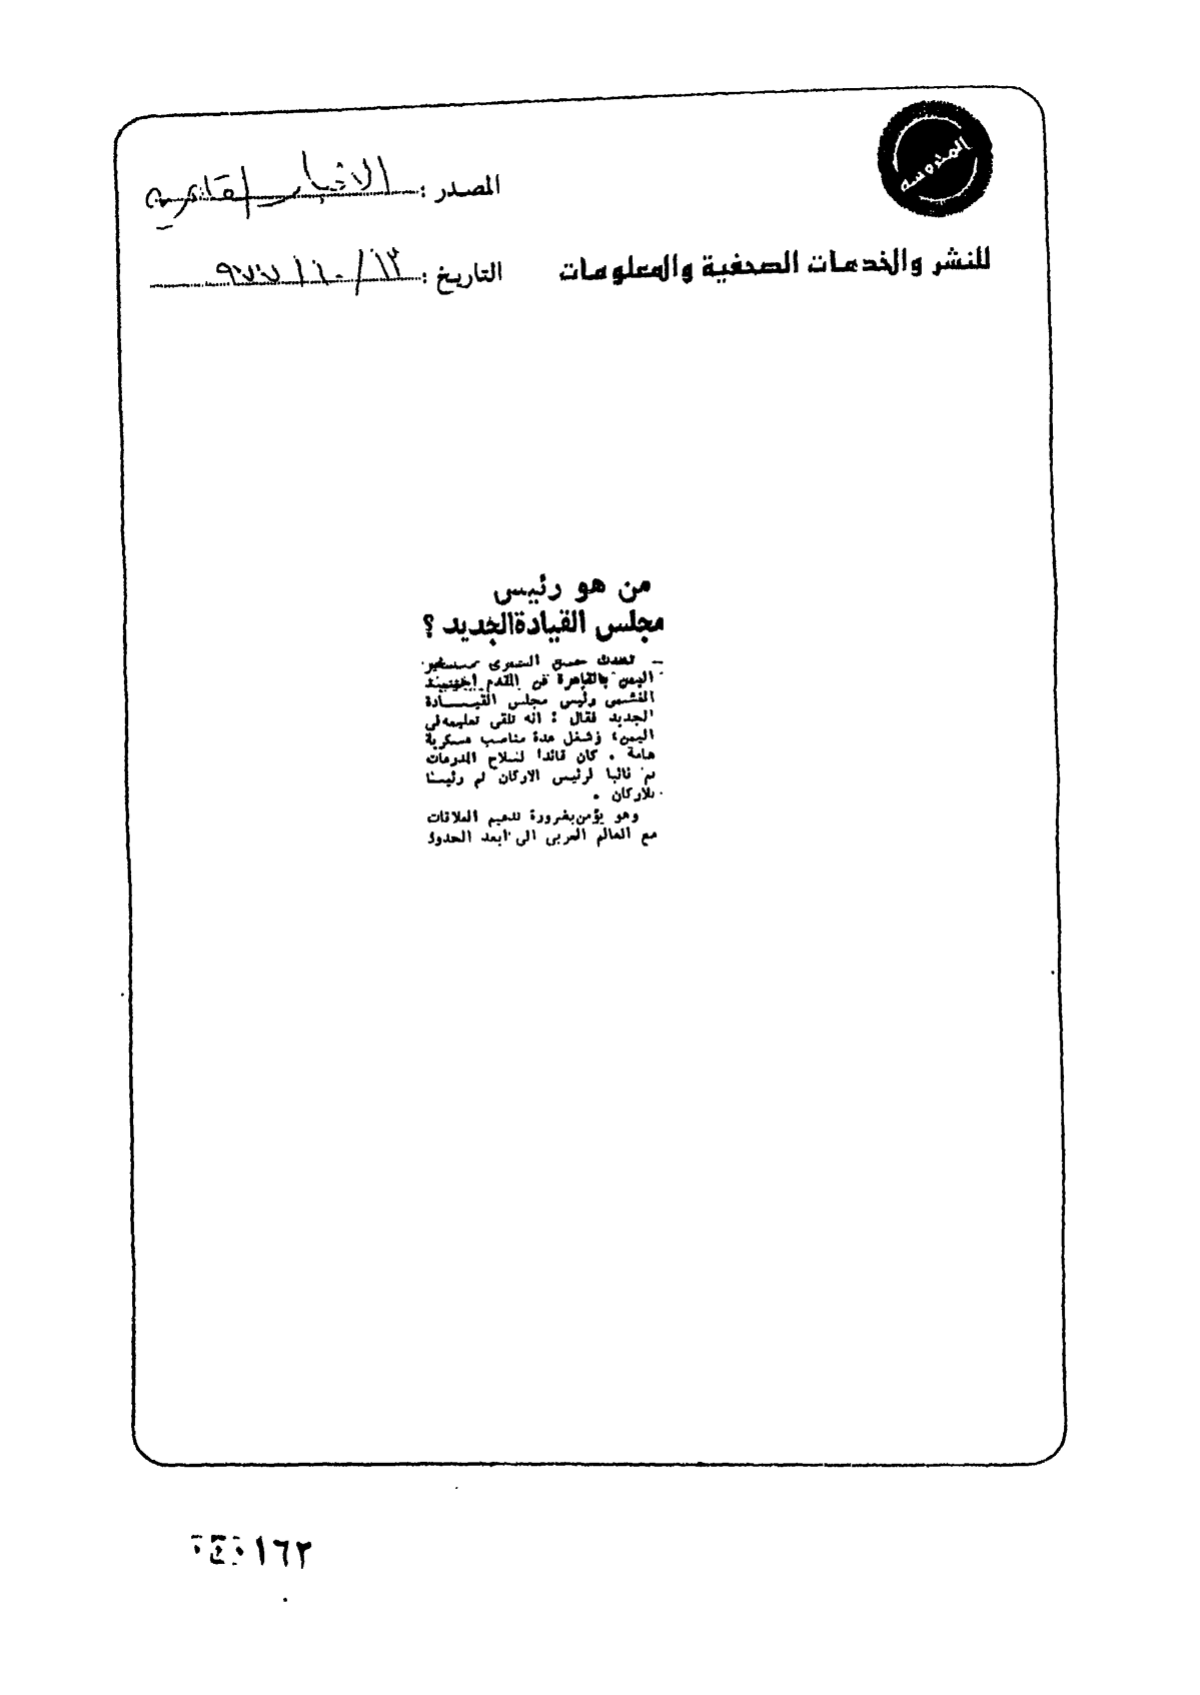 المحروسه
المصدر : الاخبار القاهرية
للنشر والخدمات الصحفية والمعلومات
التاريخ : ١٣ / ١٠ / ١٩٧٧
من هو رئيس
مجلس القيادة الجديد ؟
ــ تحدث حسن السحرى سفير
اليمن بالقاهرة عن المقدم احمد
الغشمى رئيس مجلس القيــادة
الجديد فقال : انه تلقى تعليمه فى
اليمن ، وشغل عدة مناصب عسكرية
هامة . كان قائدا لسلاح المدرعات
ثم نائبا لرئيس الاركان ثم رئيسا
للاركان .
وهو يؤمن بضرورة تدعيم العلاقات
مع العالم العربى الى ابعد الحدود
١٦٢